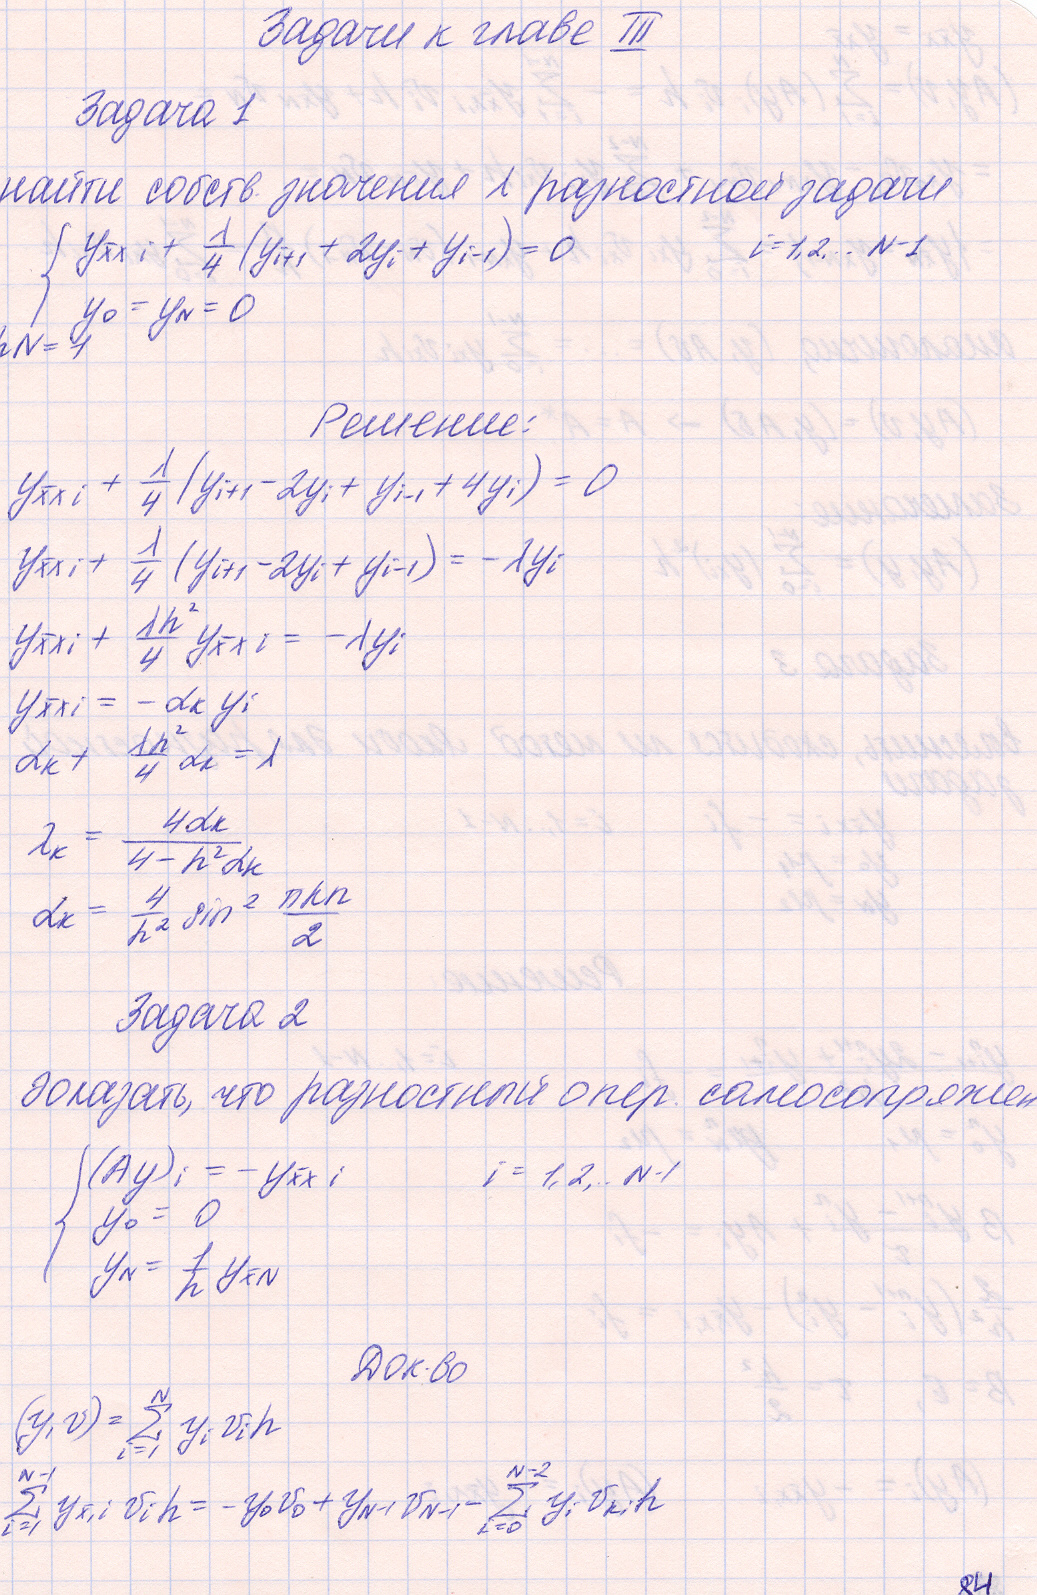 Задачи к главе III
Задача 1
найти собств. значения λ разностной задачи
{ y_{x̄x i} + λ/4 (y_{i+1} + 2y_i + y_{i-1}) = 0    i = 1,2,.. N-1
y_0 = y_N = 0
hN = 1
Решение:
y_{x̄x i} + λ/4 (y_{i+1} - 2y_i + y_{i-1} + 4y_i) = 0
y_{x̄x i} + λ/4 (y_{i+1} - 2y_i + y_{i-1}) = -λy_i
y_{x̄x i} + λh²/4 y_{x̄x i} = -λy_i
y_{x̄x i} = -α_k y_i
α_k + λh²/4 α_k = λ
λ_k = 4α_k / (4 - h²α_k)
α_k = 4/h² sin² πkh/2
Задача 2
доказать, что разностный опер. самосопряжен
{ (Ay)_i = -y_{x̄x i}    i = 1,2,.. N-1
y_0 = 0
y_N = 1/h y_{x̄N}
Док-во
(y,v) = Σ_{i=1}^{N} y_i v_i h
Σ_{i=1}^{N-1} y_{x̄,i} v_i h = -y_0 v_0 + y_{N-1} v_{N-1} - Σ_{i=0}^{N-2} y_i v_{x,i} h
84